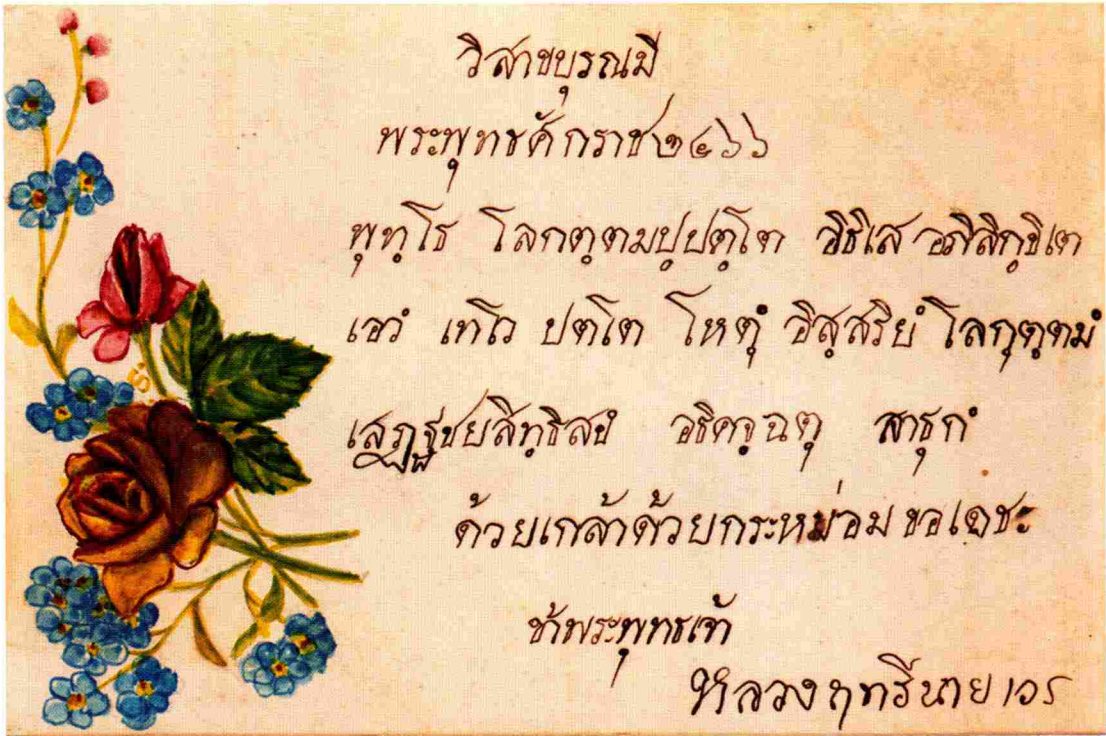 วิสาขบุรณมี
พระพุทธศักราช๒๔๖๖
พุทฺโธ โลกตฺตมปฺปตฺโต อิธิเส อภิสิทฺธิเต
เอวํ เทโว ปตโต โหตุํ อิสฺสริยํ โลกุตฺตมํ
เสฏฺฐํชยสิทฺธิสขํ อธิคจฺฉตุ สาธุกํ
ด้วยเกล้าด้วยกระหม่อม ขอเดชะ
ข้าพระพุทธเจ้า
หลวงฤทธิ์นายเวร